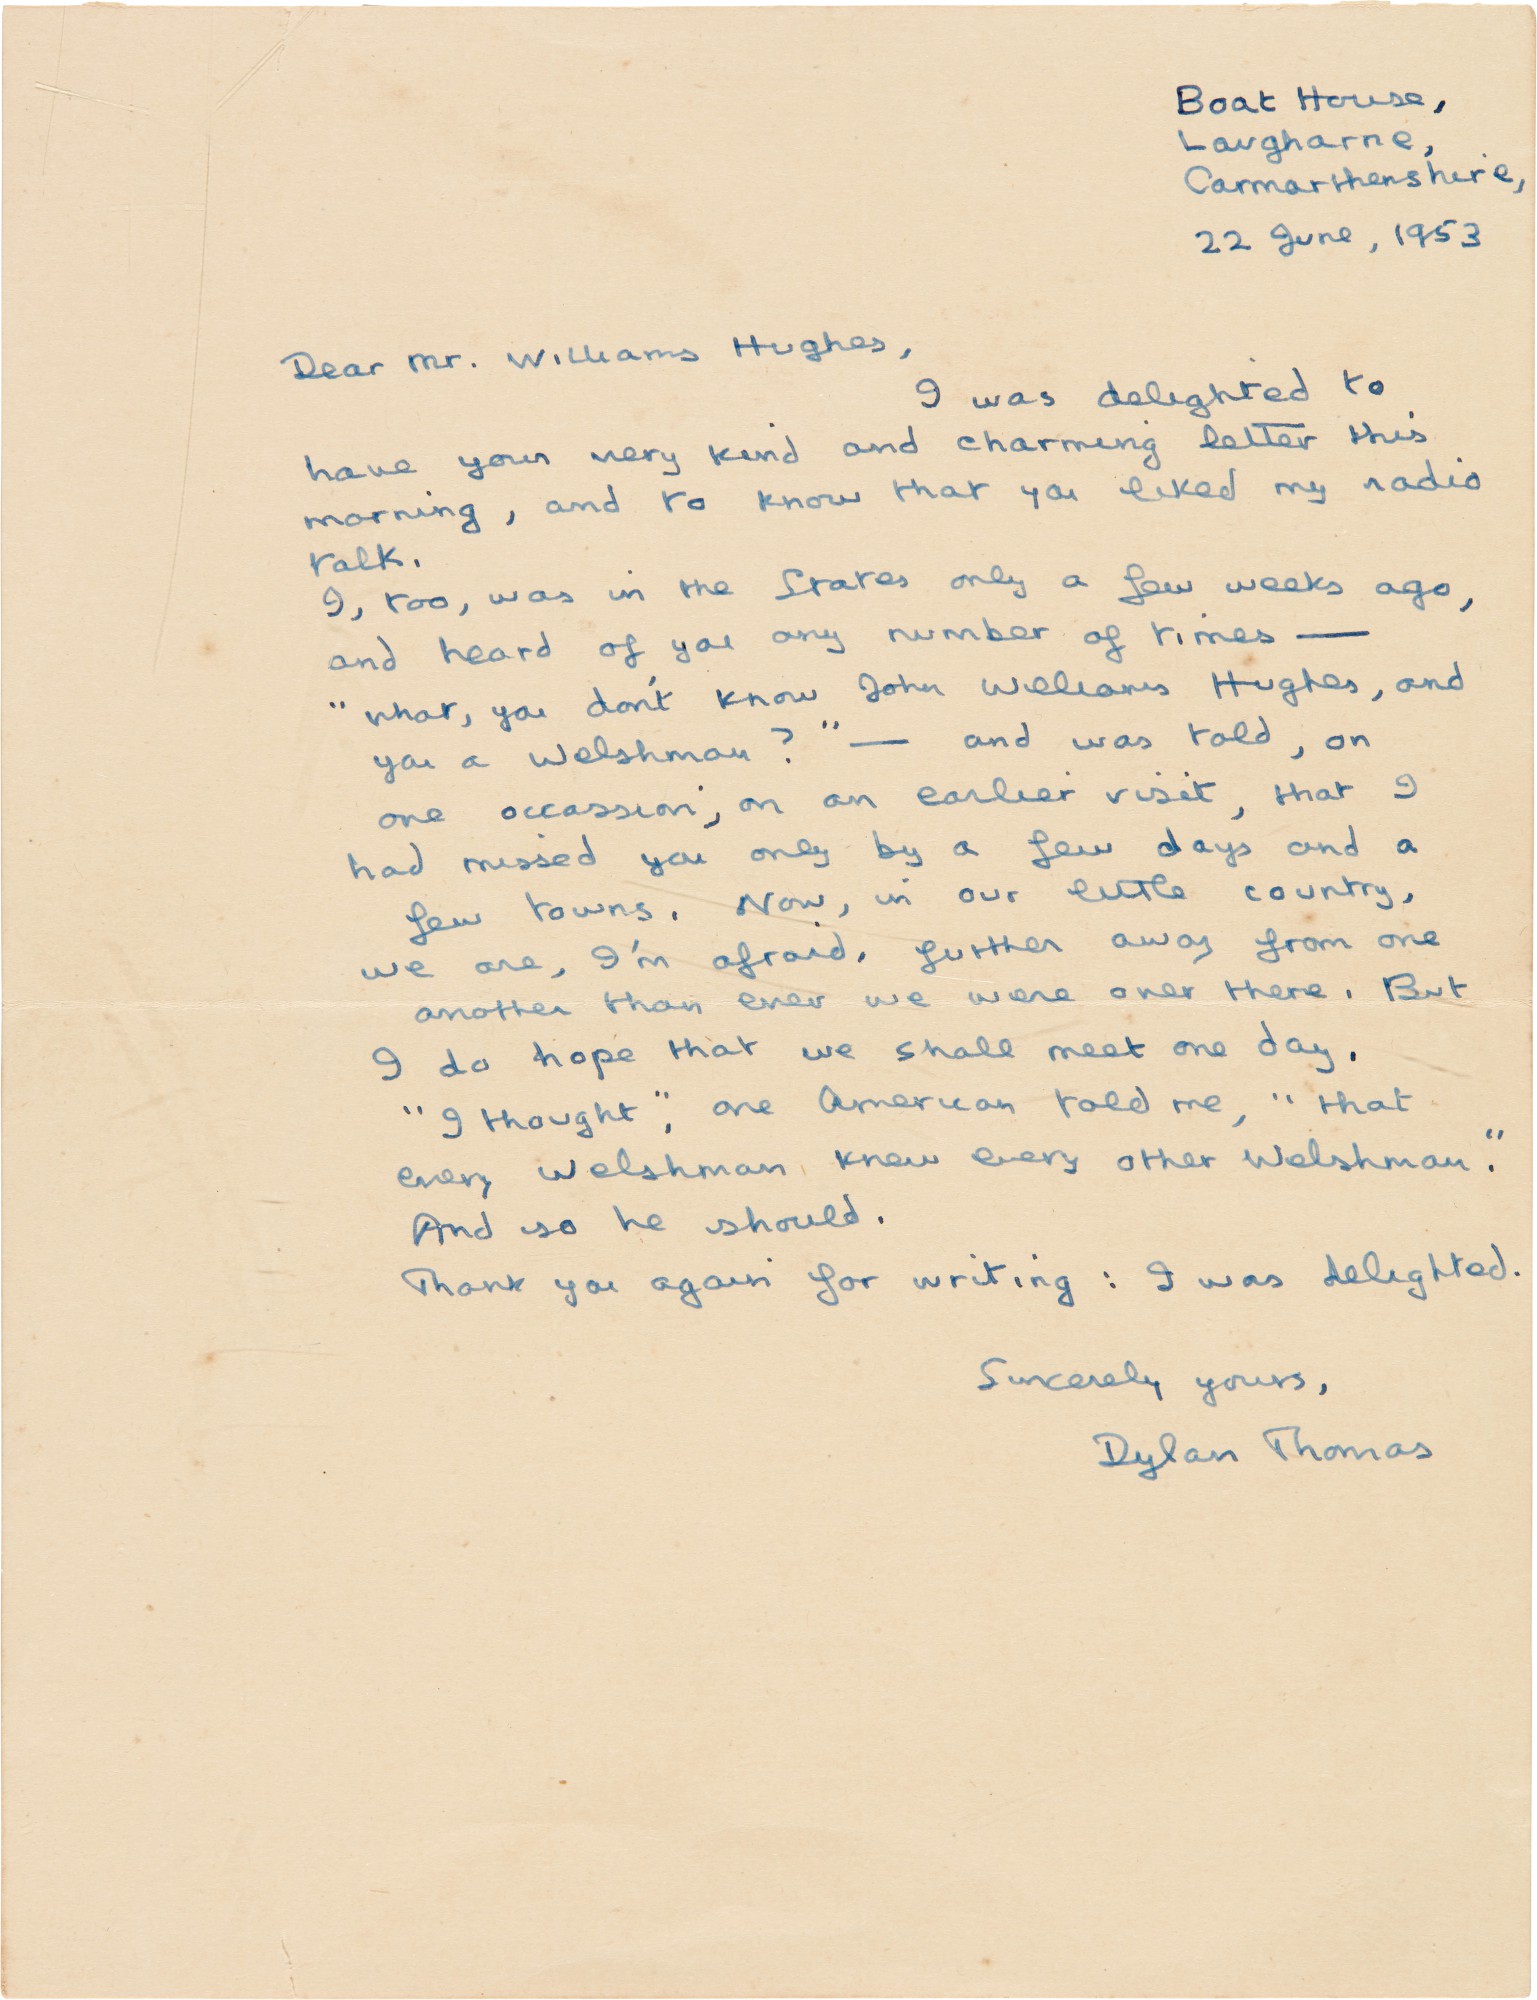 Boat House,
Laugharne,
Carmarthenshire,
22 June, 1953
Dear Mr. Williams Hughes,
I was delighted to
have your very kind and charming letter this
morning, and to know that you liked my radio
talk.
I, too, was in the States only a few weeks ago,
and heard of you any number of times —
"what, you don't know John Williams Hughes, and
you a Welshman?" — and was told, on
one occassion, on an earlier visit, that I
had missed you only by a few days and a
few towns. Now, in our little country,
we are, I'm afraid, further away from one
another than ever we were over there. But
I do hope that we shall meet one day.
"I thought", one American told me, "that
every Welshman knew every other Welshman".
And so he should.
Thank you again for writing: I was delighted.
Sincerely yours,
Dylan Thomas